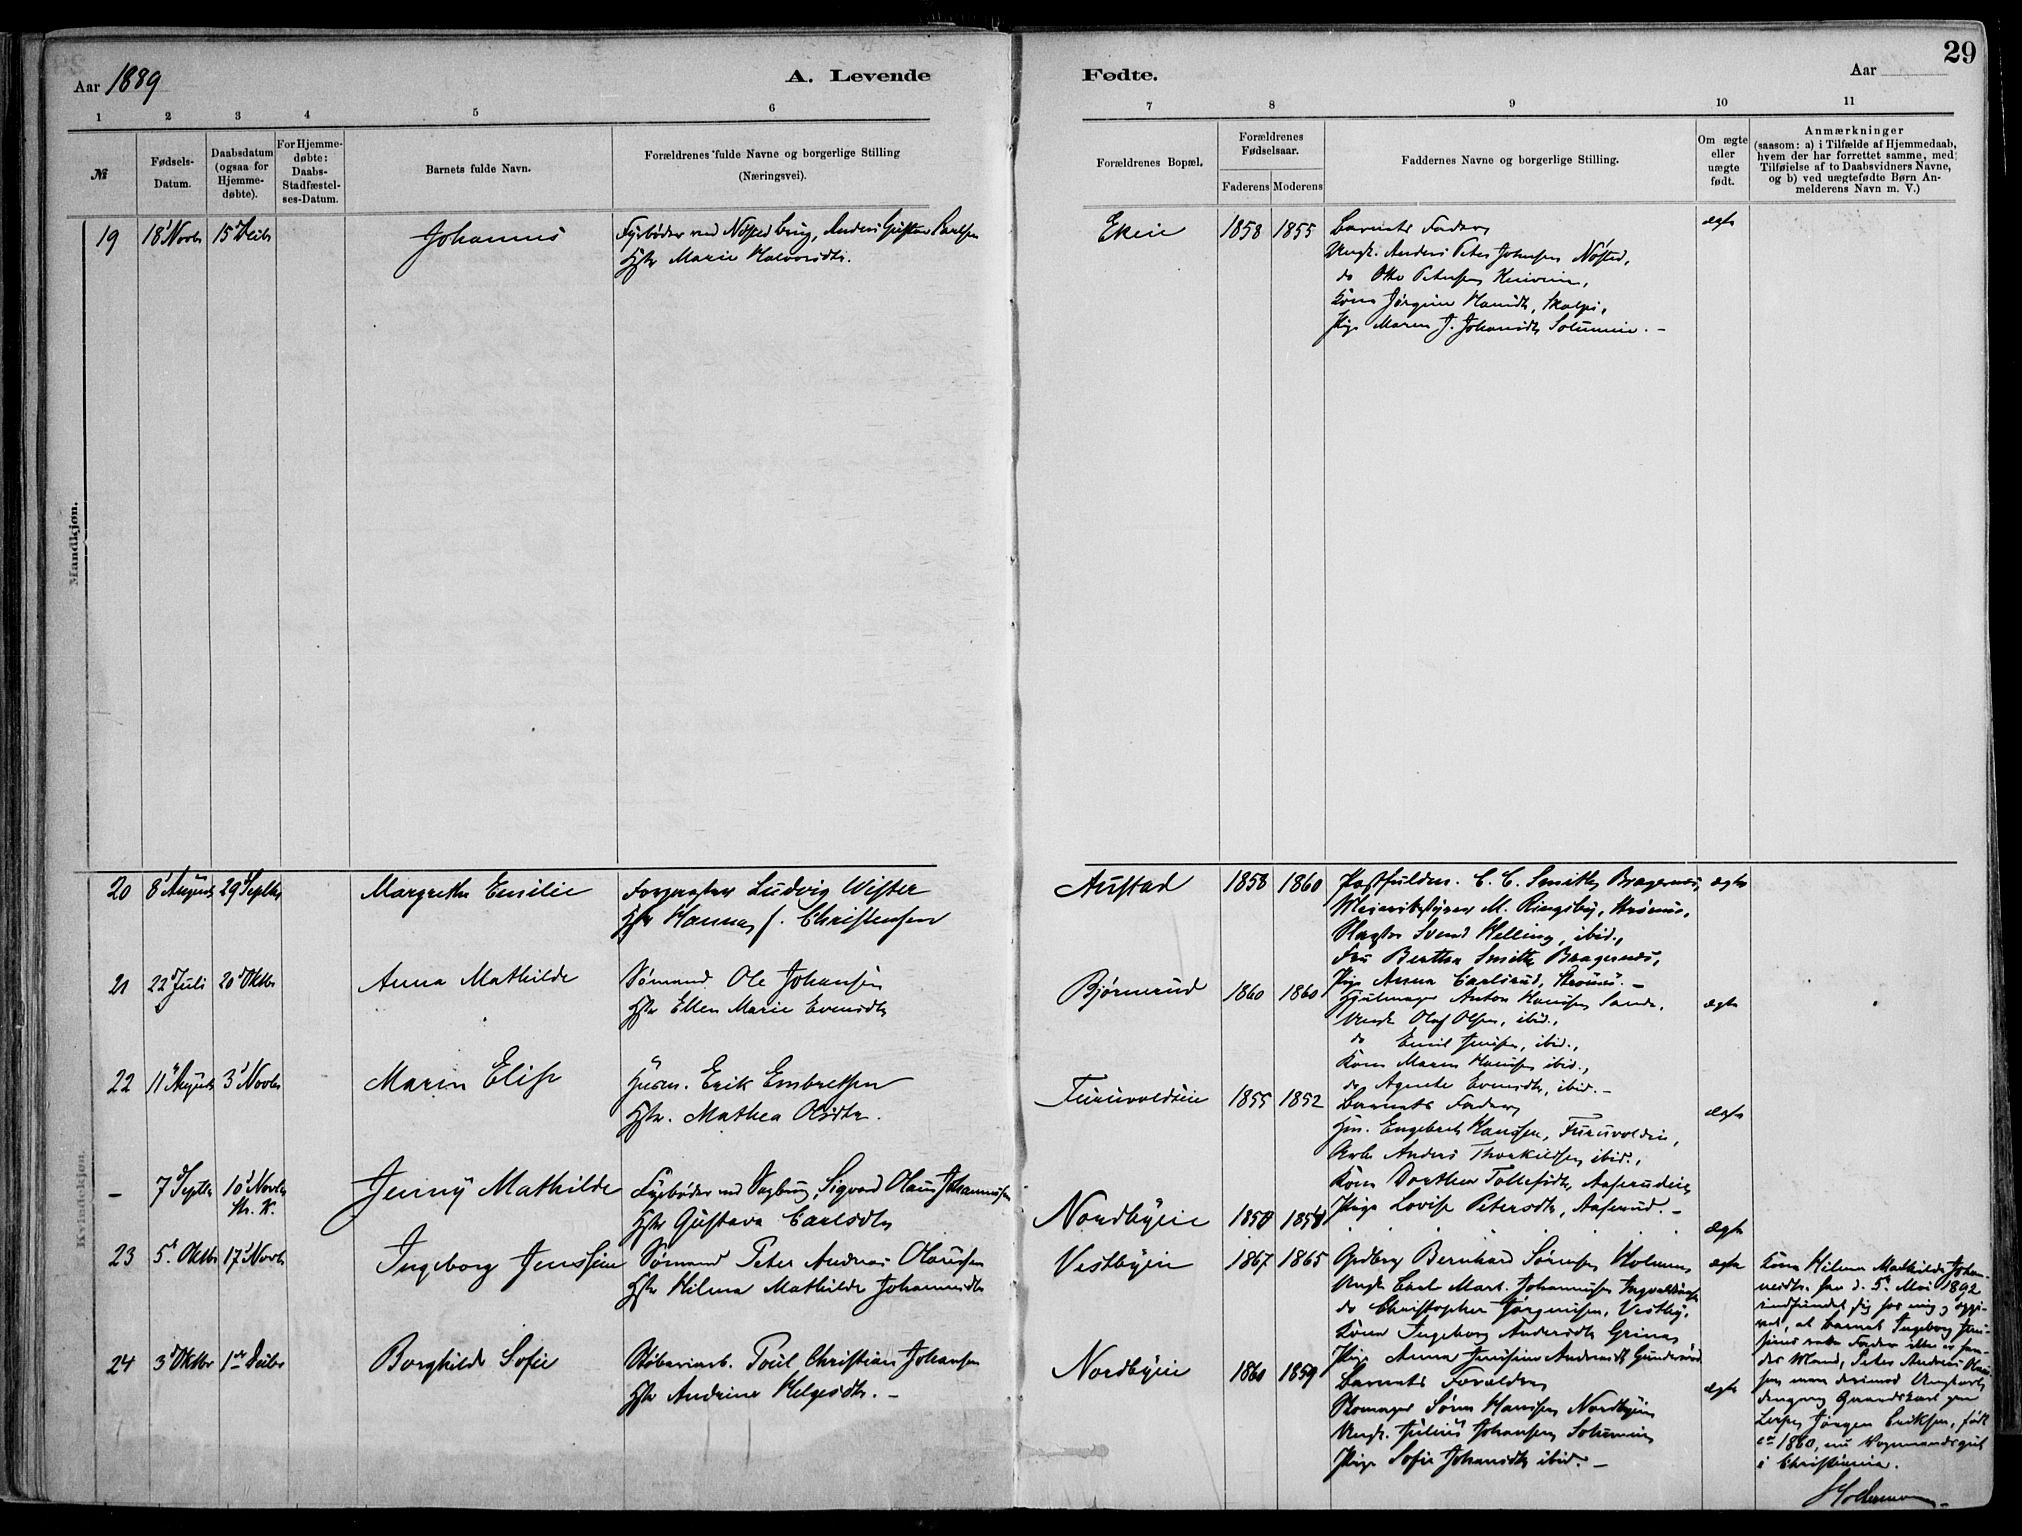 29
Aar 1889
A. Levende
Fødte.
Aar
1 2 3 4 5 6
7 8 9 10 11
№
Fødsels-
Datum.
Daabsdatum
(ogsaa for
Hjemme-
døbte).
For Hjemme-
døbte:
Daabs-
Stadfæstel-
ses-Datum.
Barnets fulde Navn.
Forældrenes fulde Navne og borgerlige Stilling
(Næringsvei).
Forældrenes Bopæl.
Forældrenes
Fødselsaar.
Faderens Moderens
Faddernes Navne og borgerlige Stilling.
Om ægte
eller
uægte
født.
Anmærkninger
(saasom: a) i Tilfælde af Hjemmedaab,
hvem der har forrettet samme, med
Tilføielse af to Daabsvidners Navne,
og b) ved uægtefødte Børn An-
melderens Navn m. V.)
Mandkjøn.
19 18 Novbr 15 Decbr
Johannes
Fyrbøder ved Nøsted brug, Anders Gustav Paulsen
Hstr Marie Halvorsdtr.
Ekeie 1858 1855
Barnets Fader,
Ungk. Anders Peter Johnsen Nøsted,
do Otto Petersen
Kone Jørgine Hansdtr,
Pige Maren J. Johansdtr Solumeie. -
ægte
Kvindekjøn.
20 8 August 29 Septbr
Margrethe Emilie
Forpagter Ludvig Wister
Hstr Hanna f. Christensen
Austad 1858 1860
Postfuldm. C. C. Smith, Bragernæs,
Meieribestyrer M. Ringsby, Strømsø,
Svend Helling, ibid.,
Fru Berthe Smith, Bragernæs,
Pige Anna Carlsrud, Strømsø. -
ægte
21 22 Juli 20 Oktbr
Anna Mathilde
Sømand Ole Johansen
Hstr Ellen Marie Evensdtr
Bjørnerud 1860 1860
Hjulmager Anton Hansen Sande,
Ungk Olaf Olsen, ibid.,
do Emil Jensen, ibid.,
Kone Maren Hansen ibid.,
do Agnete Evensdtr, ibid. -
ægte
22 11 August 3 Novbr
Maren Elise
Husm. Erik Embretsen
Hstr. Mathea Olsdtr.
Furuvoldeie 1855 1852
Barnets Fader,
Hm. Engebret Hansen, Furuvoldeie,
Arb. Anders Thorkildsen ibid.,
Kone Dorthea Tollefsdtr, Aaserudeie,
Pige Lovise Petersdtr, Aaserud. -
ægte
- 7 Septbr 10 Novbr
Str. K.
Jenny Mathilde
Fyrbøder ved Sagbrug, Sigvard Olaus Johannessen
Hstr Gustava Carlsdtr
Nordbyeie 1858 1858
ægte
23 5 Oktbr 17 Novbr
Ingeborg Jenssine
Sømand Peter Andreas Olaussen
Hstr Hilma Mathilde Johannesdtr
Vestbyeie 1867 1865
Bernhard Sørensen Holmen,
Ungk Carl Mart. Johannesen
do Christopher Jørgensen, Vestby,
Kone Ingeborg Andersdtr Grina,
Pige Anna Jensine Andersdtr Gunderud
ægte
Kone Hilma Mathilde Johan-
nesdtr. har d. 5 Mai 1892
indfundet sig for mig og opgi-
vet, at Barnet Ingeborg Jens-
sines rette Fader ikke er hen-
des Mand, Peter Andreas Olaus-
sen men derimod Ungkarl,
Jørgen Eriksen, født
ca 1860, nu Vognmandsgut
i Christiania.
24 3 Oktbr 1 Decbr
Borghilde Sofie
Støberiarb. Poul Christian Johansen
Hstr Andrine Helgesdtr. -
Nordbyeie 1860 1859
Barnets Forældre,
Skomager Søren Hansen Nordbyeie
Ungk. Julius Johansen Solumeie
Pige Sofie Johansdtr ibid. -
ægte